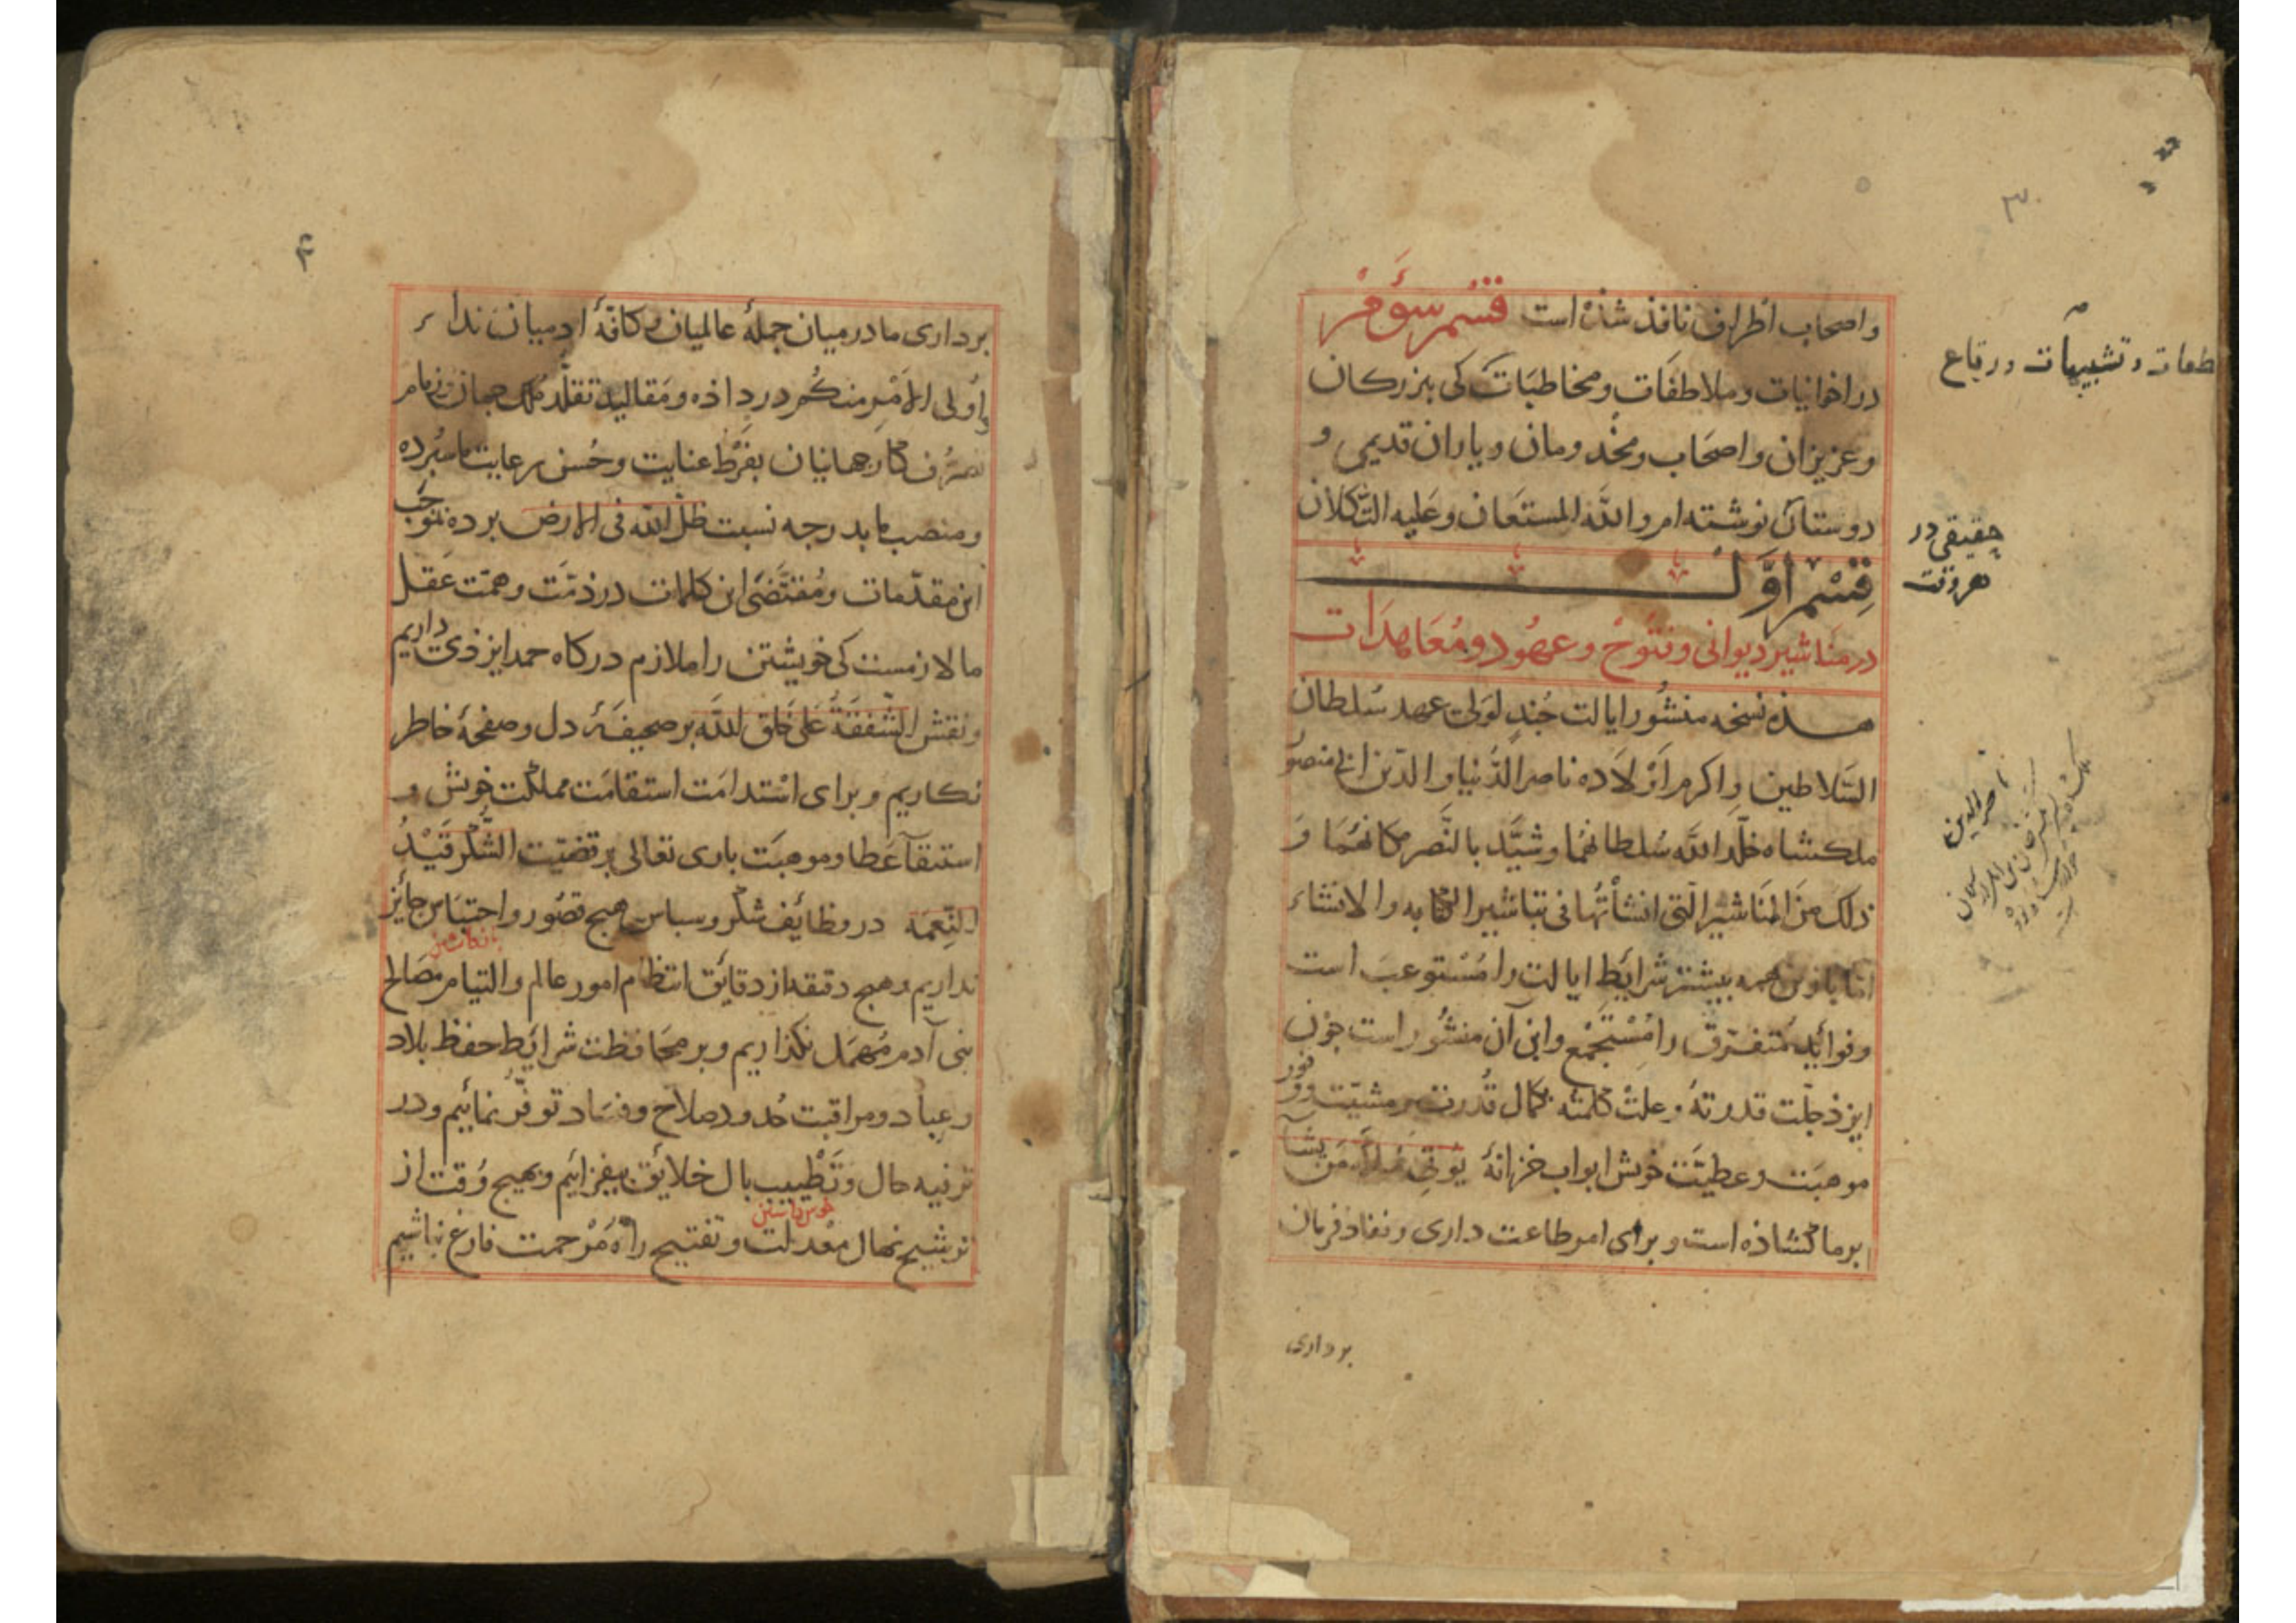 ۳
واصحاب اطراف نافذ شذه است قسم سوم
در اخوانیات وملاطفات ومخاطبات کی ببزرکان
وعزیزان واصحاب ومخدومان ویاران قدیمی و
دوستان نوشته ام والله المستعان وعلیه التکلان
قسم اول
در مناشیر دیوانی وفتوح وعهود ومعاهدات
هذه نسخه منشور ایالت جند لولی عهد سلطان
السلاطین واکرم اولاده ناصر الدنیا والدین ابی منصور
ملکشاه خلد الله سلطانهما وشید بالنصر مکانهما و
ذلک من المناشیر التی انشأتها فی تباشیر الکتابه والانشاء
اما باز این همه بیشتر شرایط ایالت را مستوعب است
وفواید متفرق را مستجمع واین آن منشور است جون
ایزذ جلت قدرته وعلت کلمته بکمال قدرت بر مشیت وفور
موهبت وعطیت خوش ابواب خزانهٔ یوتی من یشآ
بر ما کشاذه است وبرای امر طاعت داری ونفاذ فرمان
برداری
طعات وتشبیهات ورقاع
حقیقی در
هر وقت
ناصر الدین
۴
برداری ما در میان جملهٔ عالمیان وکافهٔ ادمیان ندا
واولی الامر منکم در داذه ومقالید تقلد ملک جهان وزمام
تصرف کار جهانیان بفرط عنایت وحسن رعایت ما سبرده
ومنصب ما بدرجه نسبت ظل الله فی الارض برده بموجب
این مقدمات ومقتضی این کلمات در ذمت وهمت عقل
ما لازمست کی خویشتن را ملازم درکاه حمد ایزذی داریم
ونقش الشفقة علی خلق الله بر صحیفهٔ دل وصفحهٔ خاطر
نکاریم وبرای استدامت استقامت مملکت خوش و
استبقآ عطا وموهبت باری تعالی بر قضیت الشکر قید
النعمه در وظایف شکر وسباس هیج قصور واحتباس جایز
نداریم وهیج دقیقه از دقایق انتظام امور عالم والتیام مصالح
بنی آدم مهمل نکذاریم وبر محافظت شرایط حفظ بلاد
وعباد ومراقبت حدود صلاح وفساد توفر نمائیم ودر
ترفیه حال وتطییب بال خلایق بیفزائیم وبهیج وقت از
خوش داشتن
ترشیح نهال معدلت وتفتیح راه مرحمت فارغ نباشیم